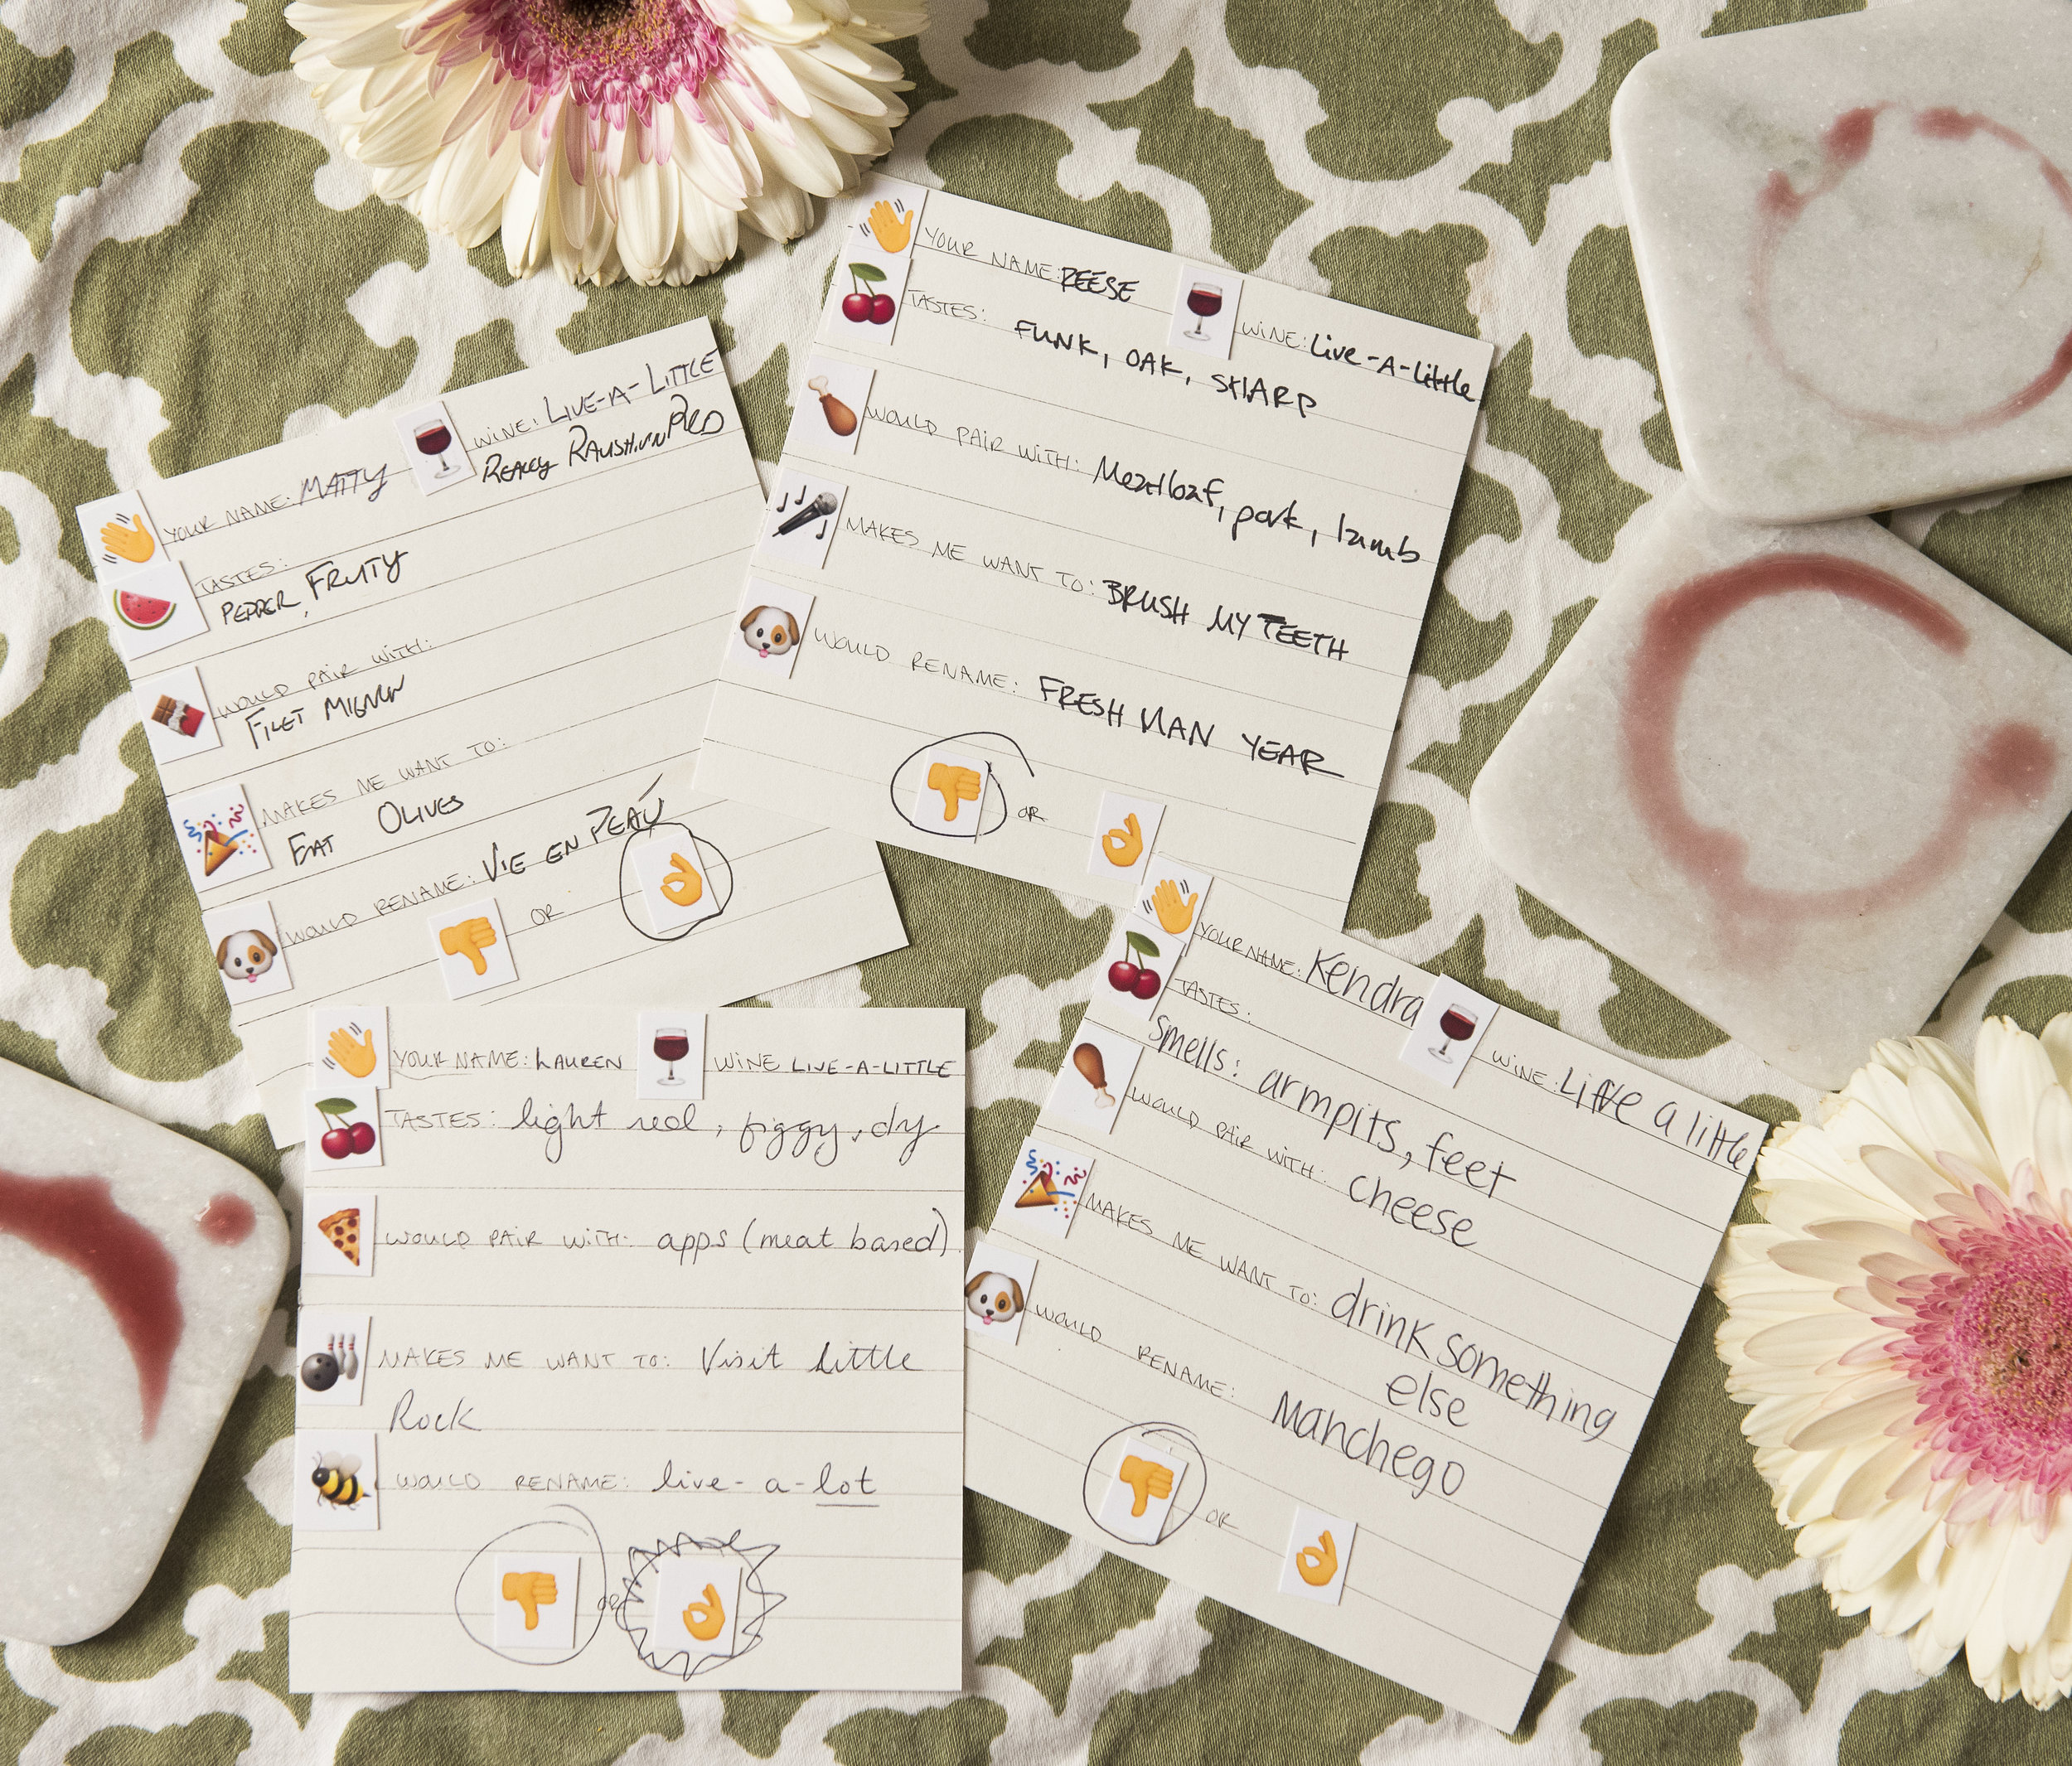 YOUR NAME: MATTY WINE: LIVE-A-LITTLE
REALLY RAUSHIN RED
TASTES:
PEPPER, FRUITY
WOULD PAIR WITH:
FILET MIGNON
MAKES ME WANT TO:
EAT OLIVES
WOULD RENAME: VIE EN PEAU
OR
YOUR NAME: REESE WINE: Live-A-Little
TASTES:
FUNK, OAK, SHARP
WOULD PAIR WITH: Meatloaf, pork, lamb
MAKES ME WANT TO: BRUSH MY TEETH
WOULD RENAME: FRESHMAN YEAR
OR
YOUR NAME: LAUREN WINE LIVE-A-LITTLE
TASTES: light red, figgy, dry
WOULD PAIR WITH: apps (meat based)
MAKES ME WANT TO: Visit little
Rock
WOULD RENAME: live-a-lot
OR
YOUR NAME: Kendra WINE: Live a little
TASTES:
Smells: armpits, feet
WOULD PAIR WITH: cheese
MAKES ME WANT TO: drink something
else
WOULD RENAME: Manchego
OR